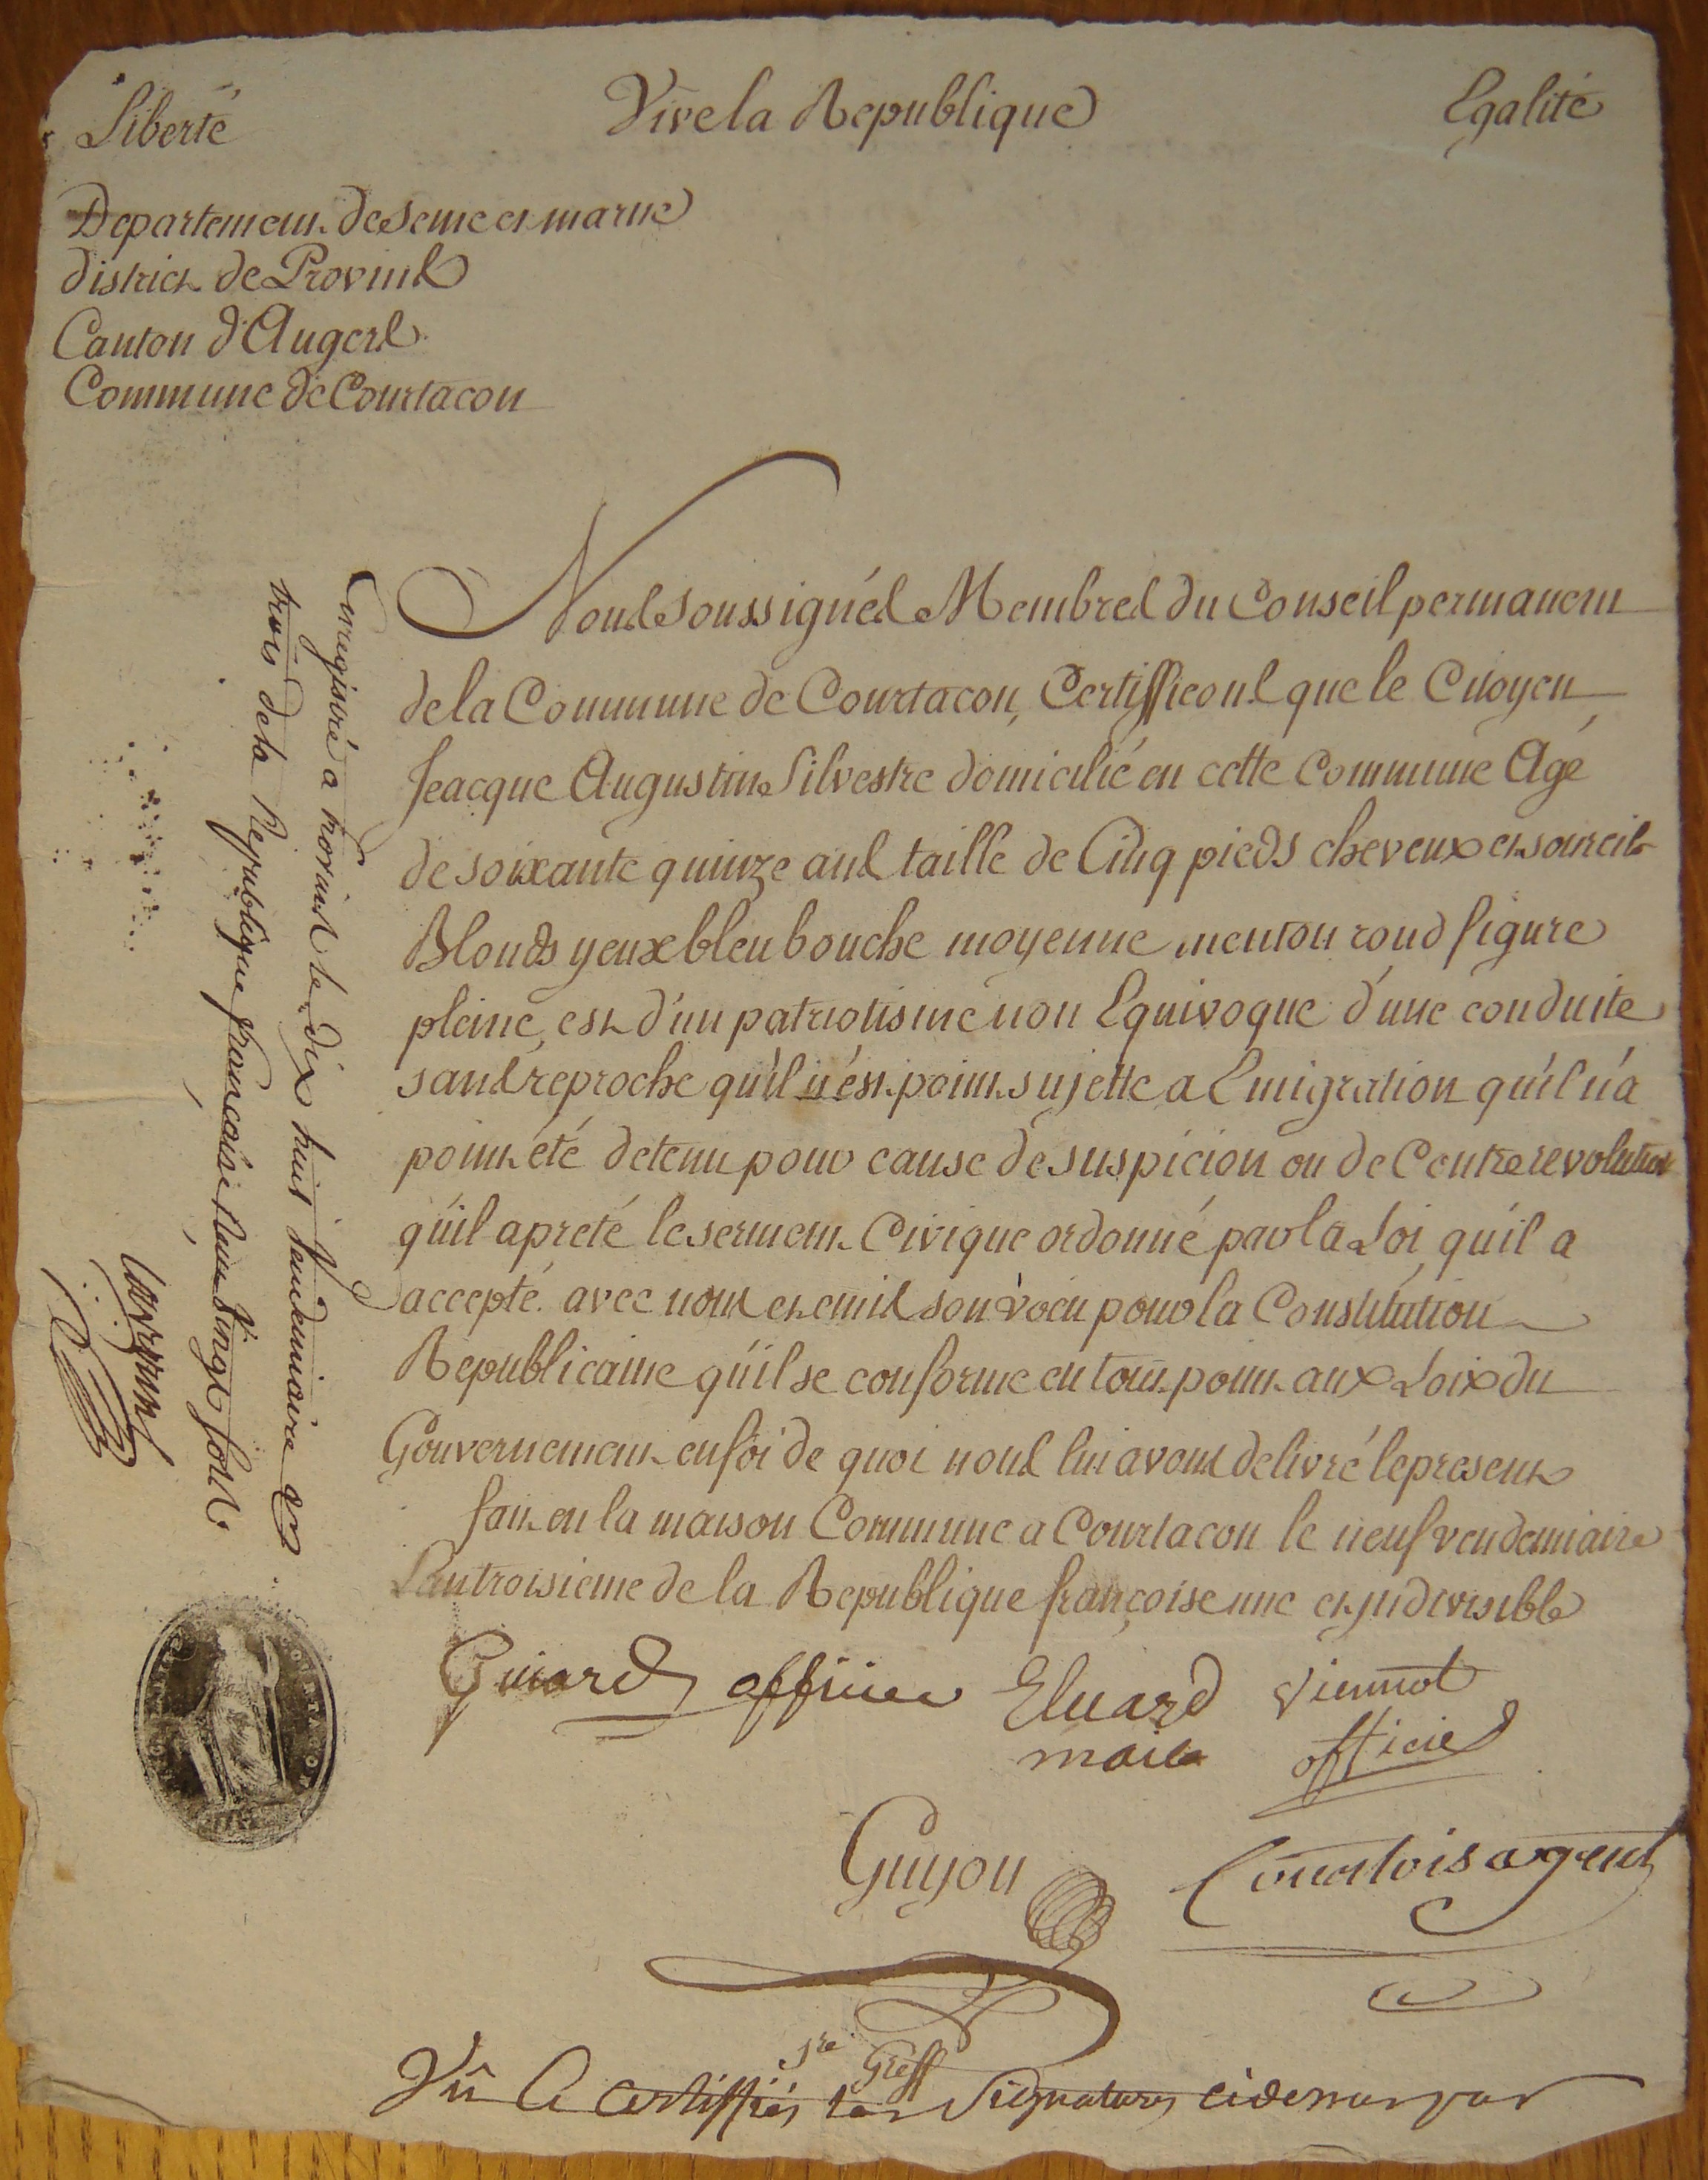 Liberté Vive la Republique Egalité
Departement de Seine et marne
district de Provins
Canton d'Augers
Commune de Courtacon
Nous Soussignés Membres du Conseil permanent
de la Commune de Courtacon, Certiffions que le Citoyen
Jeacque Augustin Silvestre domicilié en cette commune Agé
de soixante quinze ans taille de Cinq pieds cheveux et sourcils
Blonds yeux bleu bouche moyenne menton rond figure
pleine, est d'un patriotisme non Equivoque d'une conduite
sans reproche qu'il n'est point sujette a Emigration qu'il n'a
point été detenu pour cause de suspicion ou de Contre revolution
qu'il a preté le serment Civique ordonné par la Loi, qu'il a
accepté avec nous et emis son voeu pour la Constitution
Republicaine qu'il se conforme en tout point aux Loix du
Gouvernement en foi de quoi nous lui avons delivré le present
fait en la maison Commune a Courtacon le neuf vendemiaire
L'an troisieme de la Republique françoise une et indivisible
Guiard officier Eluard Viennot
maire officier
Guyon Courtois agent
Sre Greff
Vû & certiffiés les Signatures cidessus par
Enregistré a provins le dix huit vendemiaire an
trois de la Republique française Reçu Vingt sols.
COURTACON